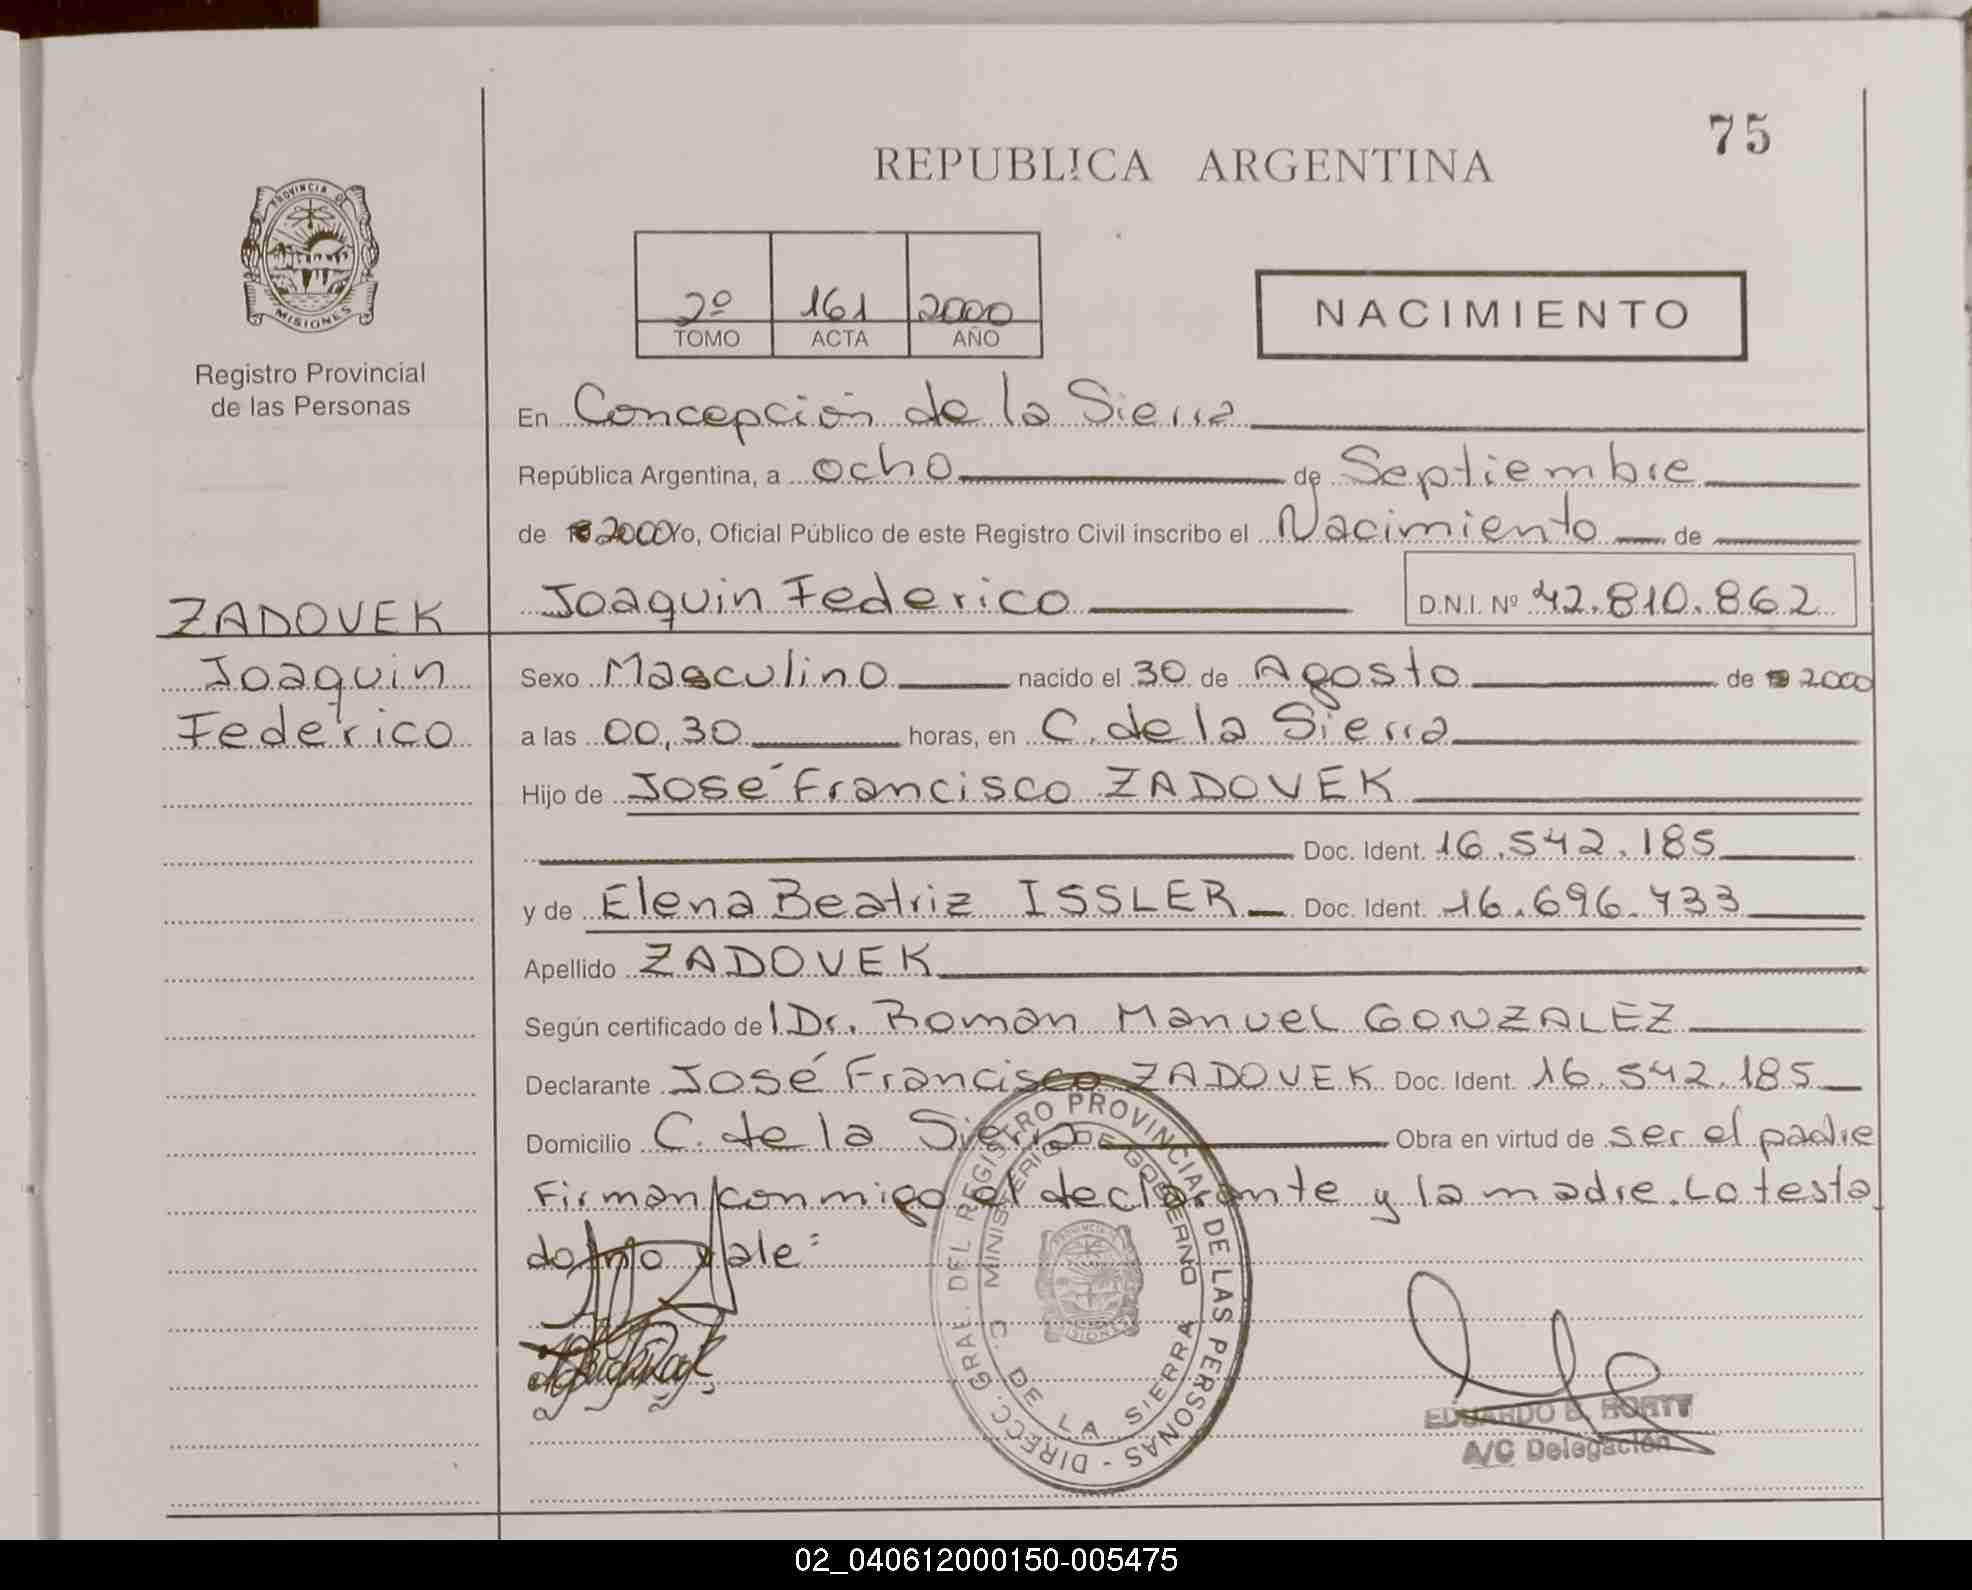 75
REPUBLICA ARGENTINA
PROVINCIA DE
MISIONES
Registro Provincial
de las Personas
2º 161 2000
TOMO ACTA AÑO
NACIMIENTO
En Concepción de la Sierra
República Argentina, a ocho de Septiembre
de 2000 Yo, Oficial Público de este Registro Civil inscribo el Nacimiento de
ZADOVEK
Joaquin Federico D.N.I. Nº 42.810.862
Joaquin
Sexo Masculino nacido el 30 de Agosto de 2000
Federico
a las 00,30 horas, en C. de la Sierra
Hijo de José Francisco ZADOVEK
Doc. Ident. 16.542.185
y de Elena Beatriz ISSLER Doc. Ident. 16.696.433
Apellido ZADOVEK
Según certificado de l Dr. Roman Manuel GONZALEZ
Declarante José Francisco ZADOVEK Doc. Ident. 16.542.185
Domicilio C. de la Sierra Obra en virtud de ser el padre
Firman conmigo el declarante y la madre. Lo testa
do no vale:
DIRECC. GRAL. DEL REGISTRO PROVINCIAL DE LAS PERSONAS -
MINISTERIO DE GOBIERNO
C. DE LA SIERRA
PROVINCIA
MISIONES
EDUARDO
A/C Delegación
02_040612000150-005475